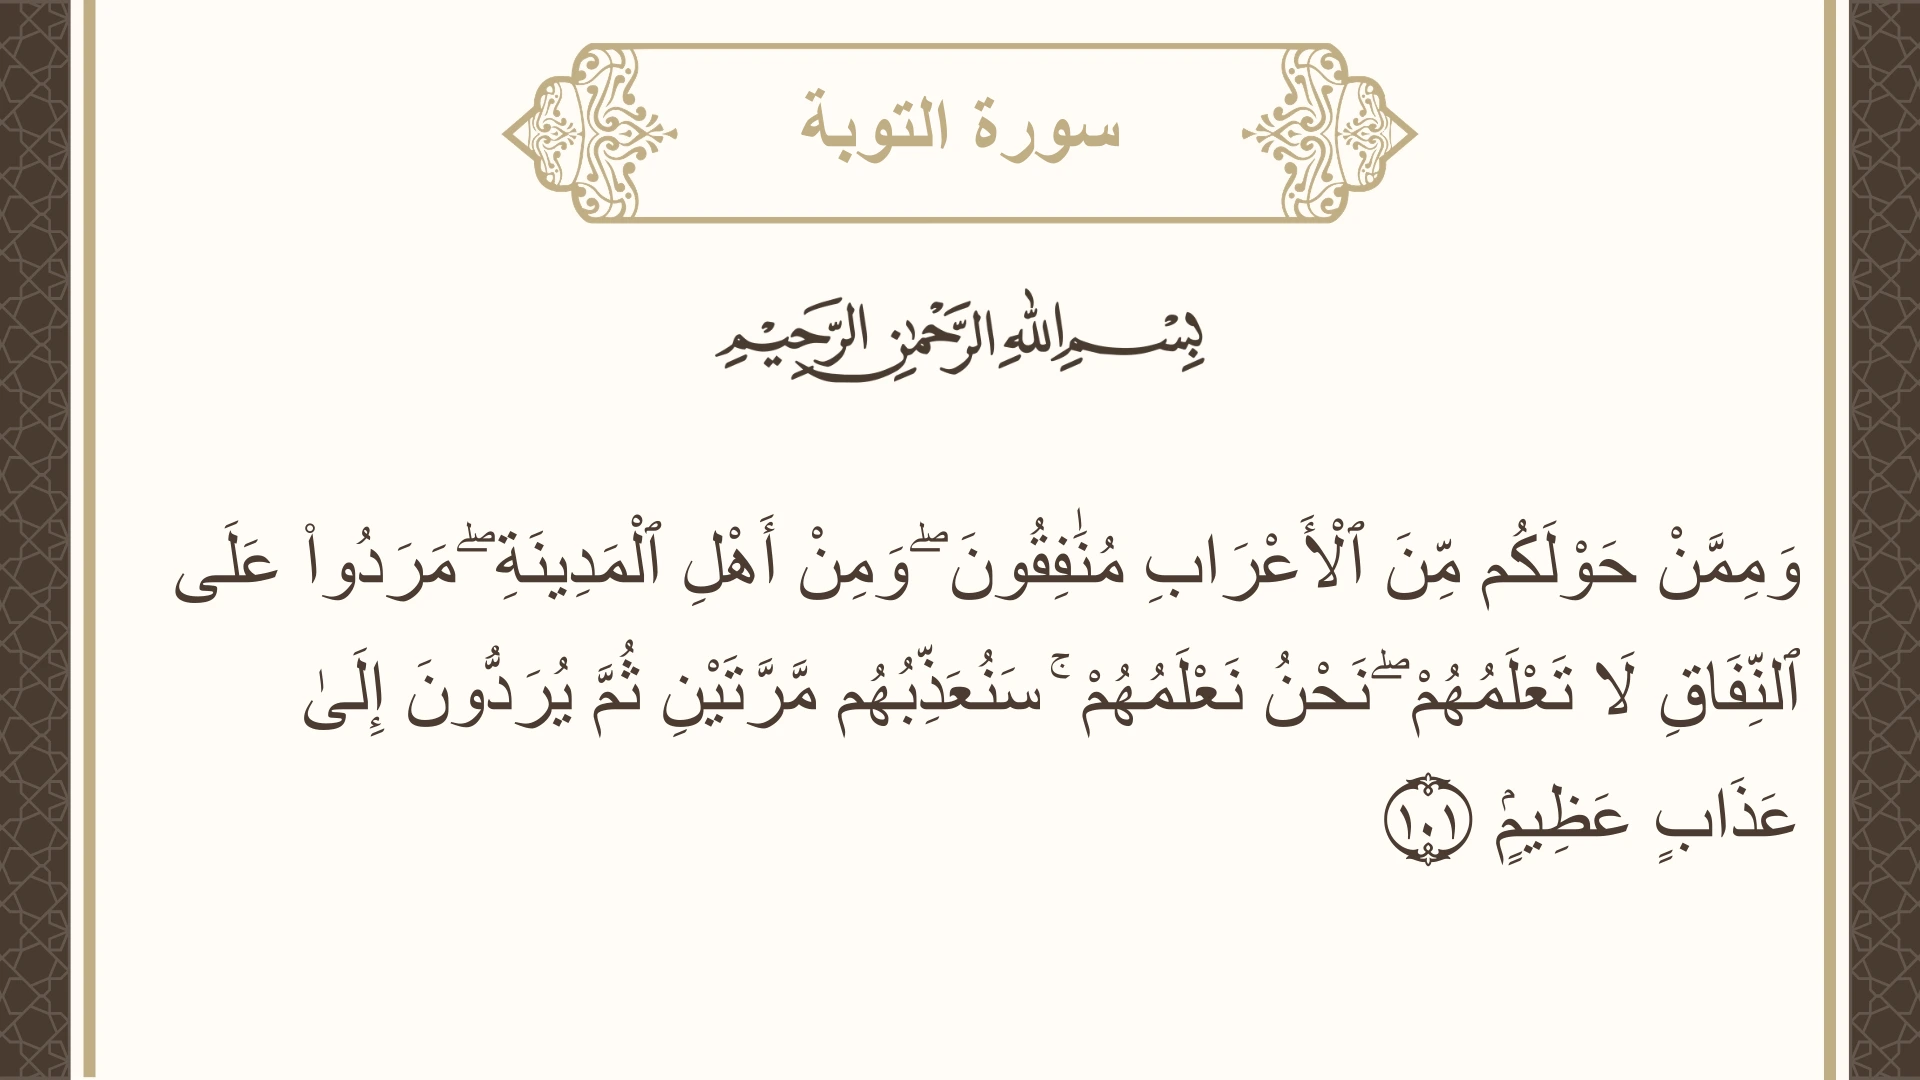 سورة التوبة
بِسْمِ اللهِ الرَّحْمٰنِ الرَّحِيْمِ
وَمِمَّنْ حَوْلَكُم مِّنَ ٱلْأَعْرَابِ مُنَٰفِقُونَ ۖ وَمِنْ أَهْلِ ٱلْمَدِينَةِ ۖ مَرَدُوا۟ عَلَى
ٱلنِّفَاقِ لَا تَعْلَمُهُمْ ۖ نَحْنُ نَعْلَمُهُمْ ۚ سَنُعَذِّبُهُم مَّرَّتَيْنِ ثُمَّ يُرَدُّونَ إِلَىٰ
عَذَابٍ عَظِيمٍۢ ١٠١